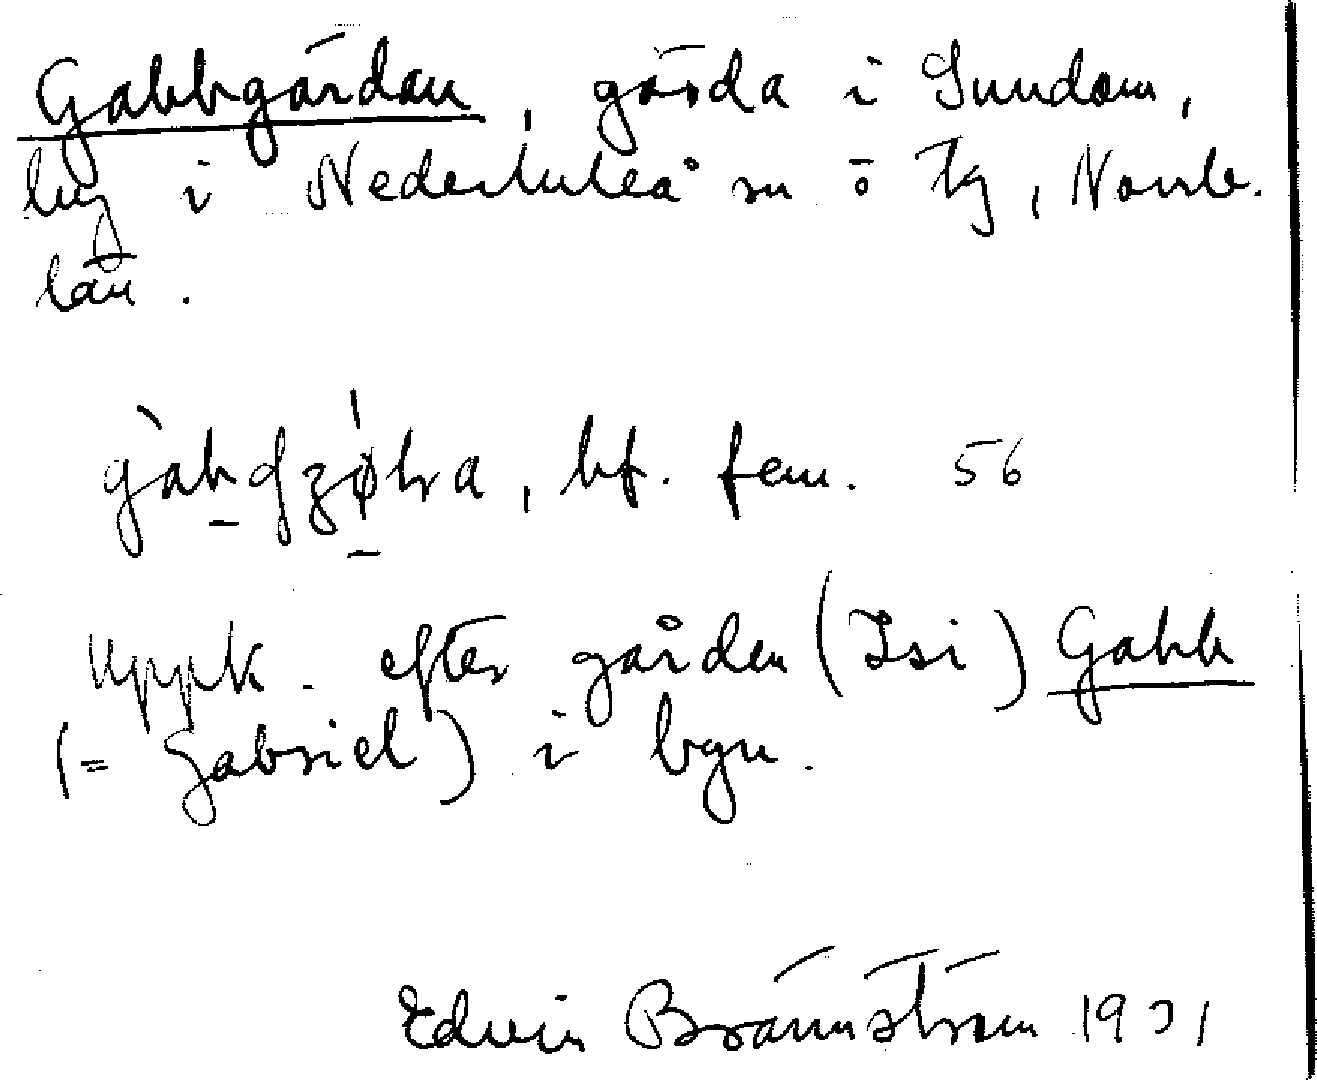 Gabbgärdan, gärda i Sundom,
by i Nederluleå sn o tg, Norrb.
län.
bf. fem. 56
Uppk. efter gården (Isi) Gabb
(= Gabriel) i byn.
Edvin Brännström 1931